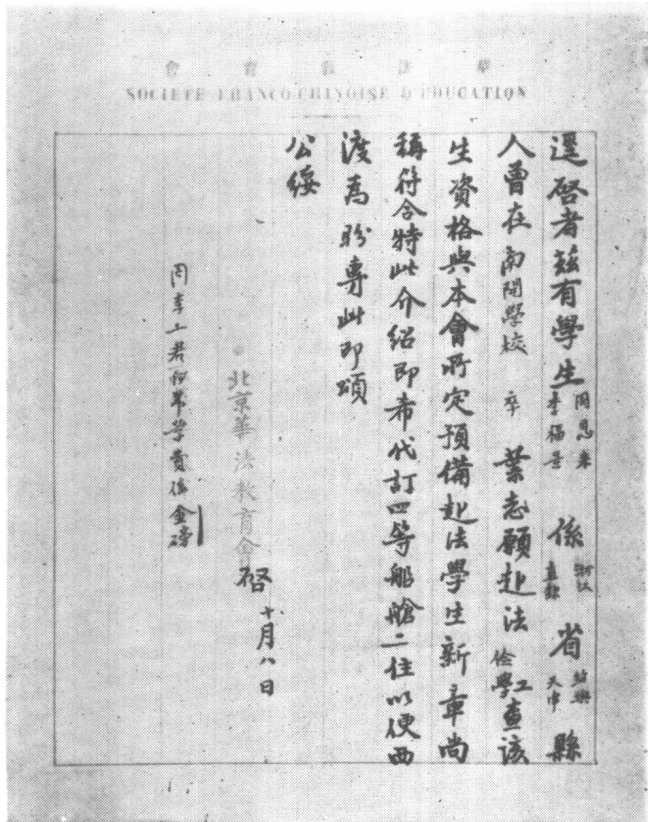 華法教育會
SOCIÉTÉ FRANCO-CHINOISE D'ÉDUCATION
逕啓者茲有學生周恩來李福景係浙江直隸省紹興天津縣
人曾在南開學校卒業志願赴法儉學工查該
生資格與本會所定預備赴法學生新章尚
稱符合特此介紹即希代訂四等船艙二位以便西
渡為盼專此即頌
公綏
北京華法教育會啓
十月八日
周李二君所帶學費係金磅